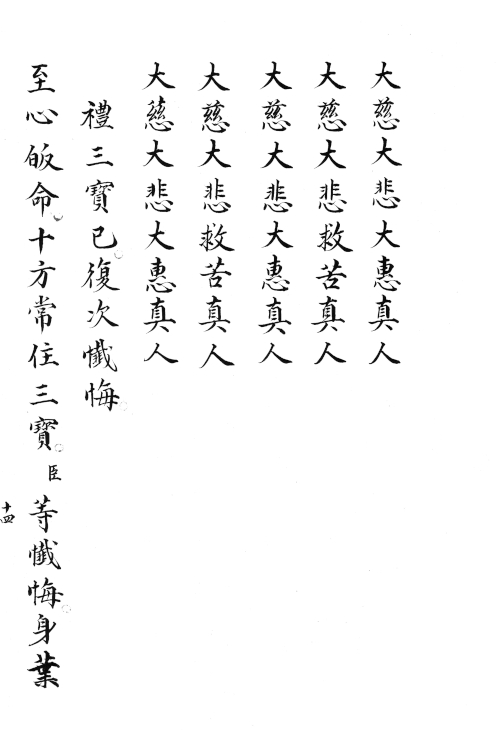 大慈大悲大惠真人
大慈大悲救苦真人
大慈大悲大惠真人
大慈大悲救苦真人
大慈大悲大惠真人
禮三寶已。復次懺悔。
至心皈命。十方常住三寶。臣等懺悔。身業
十四